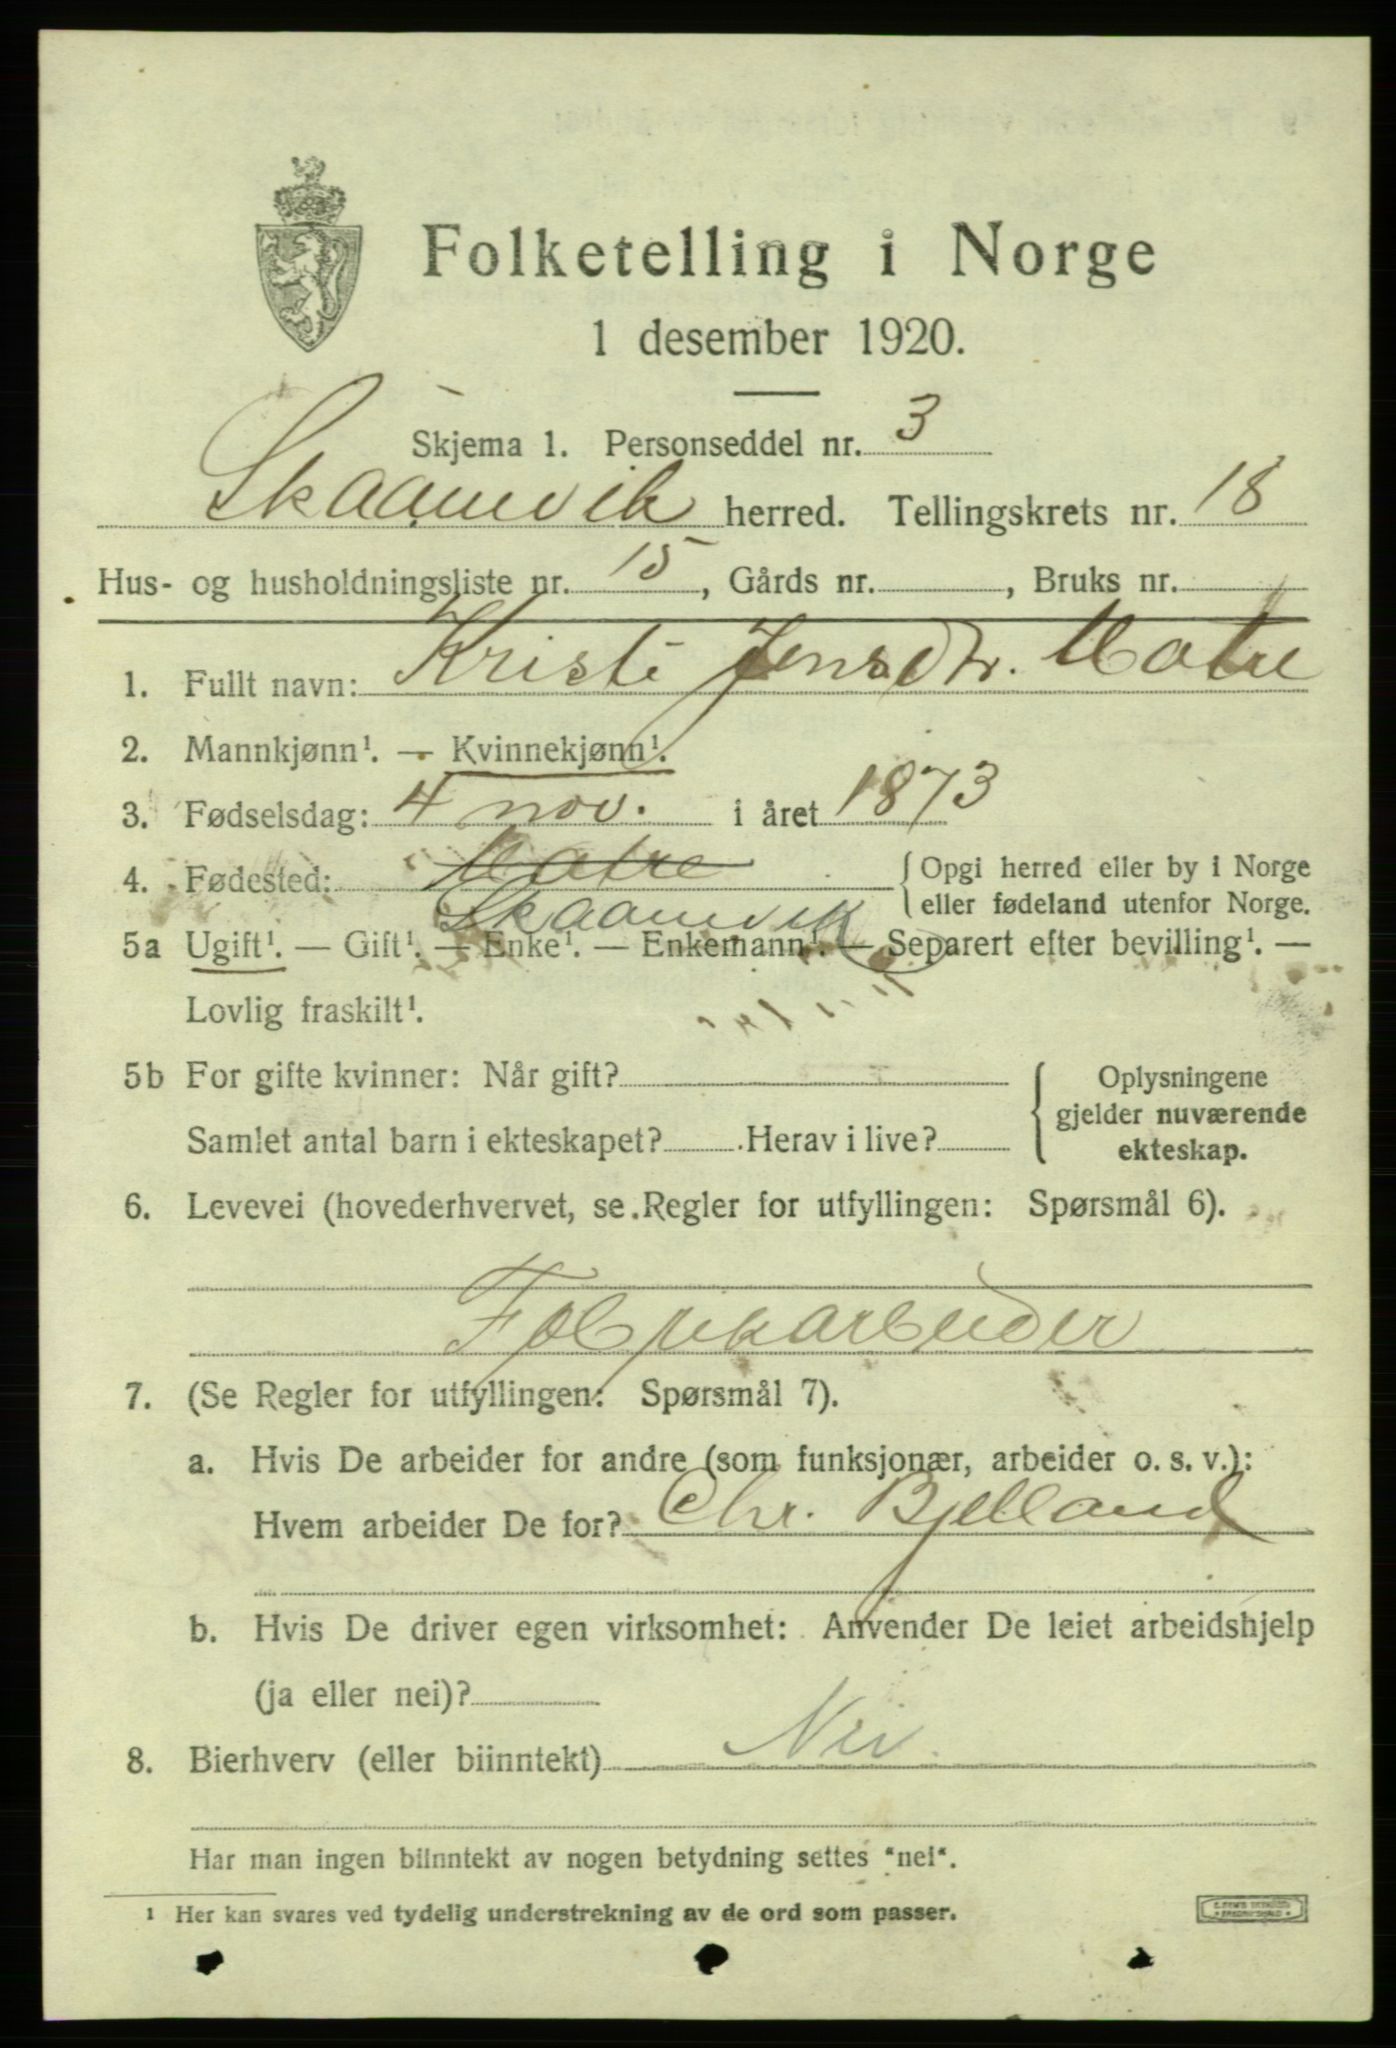 Folketelling i Norge
1 desember 1920.
Skjema 1. Personseddel nr. 3
Skaanevik herred. Tellingskrets nr. 18
Hus- og husholdningsliste nr. 15, Gårds nr. , Bruks nr.
1. Fullt navn: Kristi Jensdtr. Matre
2. Mannkjønn¹. — Kvinnekjønn¹.
3. Fødselsdag: 4 nov. i året 1873
4. Fødested: Matre { Opgi herred eller by i Norge
Skaanevik eller fødeland utenfor Norge.
5a Ugift¹. — Gift¹. — Enke¹. — Enkemann¹. — Separert efter bevilling¹. —
Lovlig fraskilt¹.
5b For gifte kvinner: Når gift? { Oplysningene
gjelder nuværende
Samlet antal barn i ekteskapet? Herav i live? ekteskap.
6. Levevei (hovederhvervet, se Regler for utfyllingen: Spørsmål 6).
Fabrikarbeider
7. (Se Regler for utfyllingen: Spørsmål 7).
a. Hvis De arbeider for andre (som funksjonær, arbeider o. s. v.):
Hvem arbeider De for? Chr. Bjelland
b. Hvis De driver egen virksomhet: Anvender De leiet arbeidshjelp
(ja eller nei)?
8. Bierhverv (eller biinntekt) Nei
Har man ingen biinntekt av nogen betydning settes "nei".
¹ Her kan svares ved tydelig understrekning av de ord som passer.